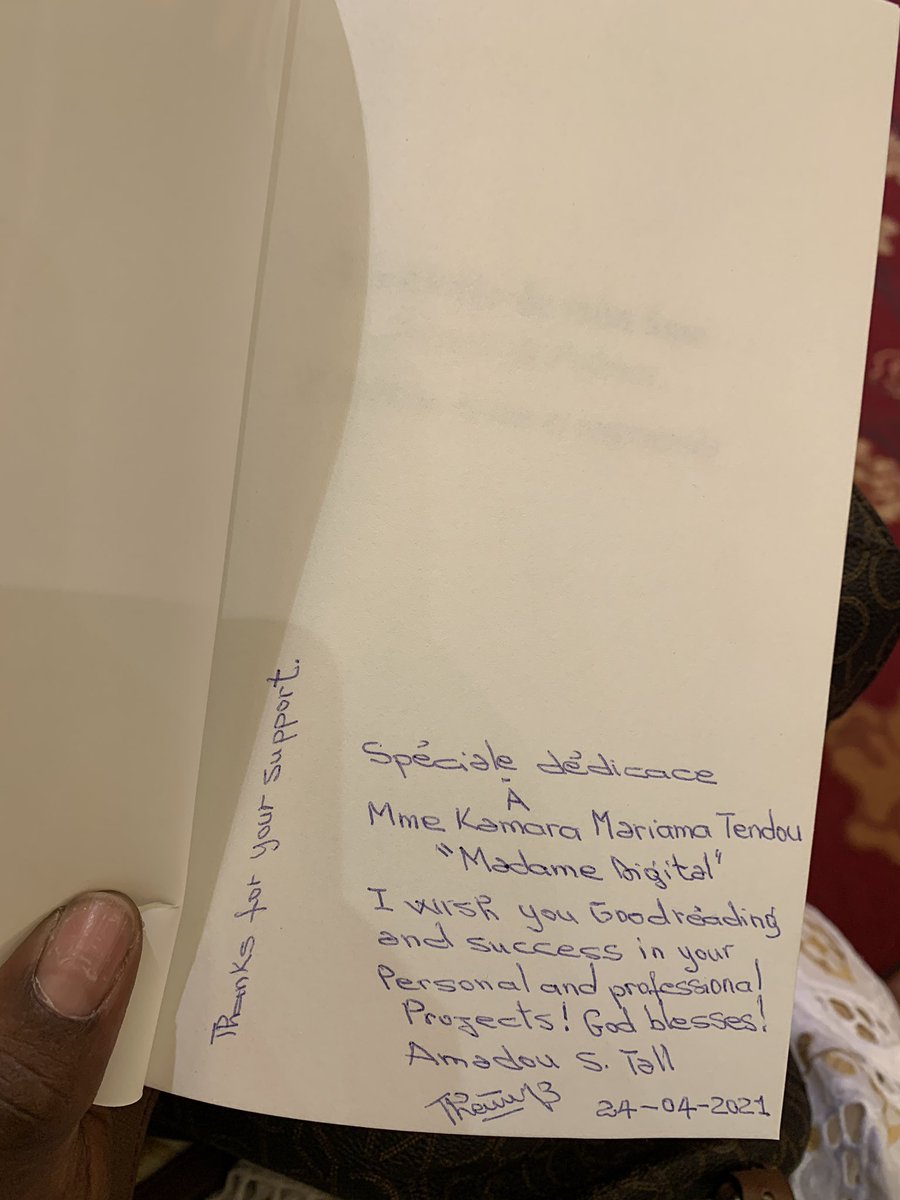 Spéciale dédicace
À
Mme Kamara Mariama Tendou
"Madame Digital"
I wish you Good reading
and success in your
Personal and professional
Projects! God blesses!
Amadou S. Tall
24-04-2021
Thanks for your support.